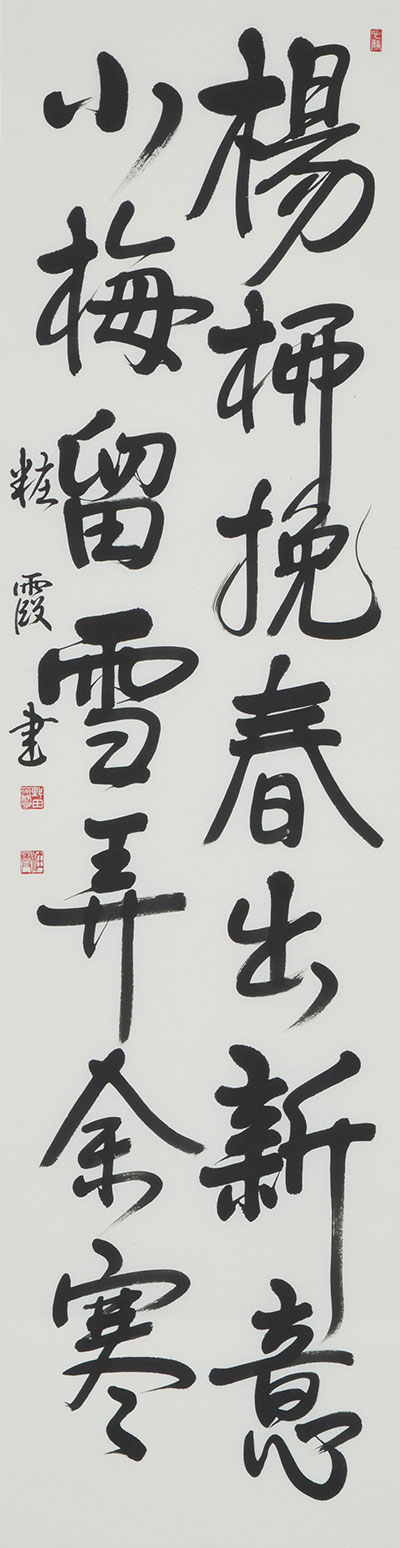 楊柳挽春出新意
小梅留雪弄余寒
粧霞書